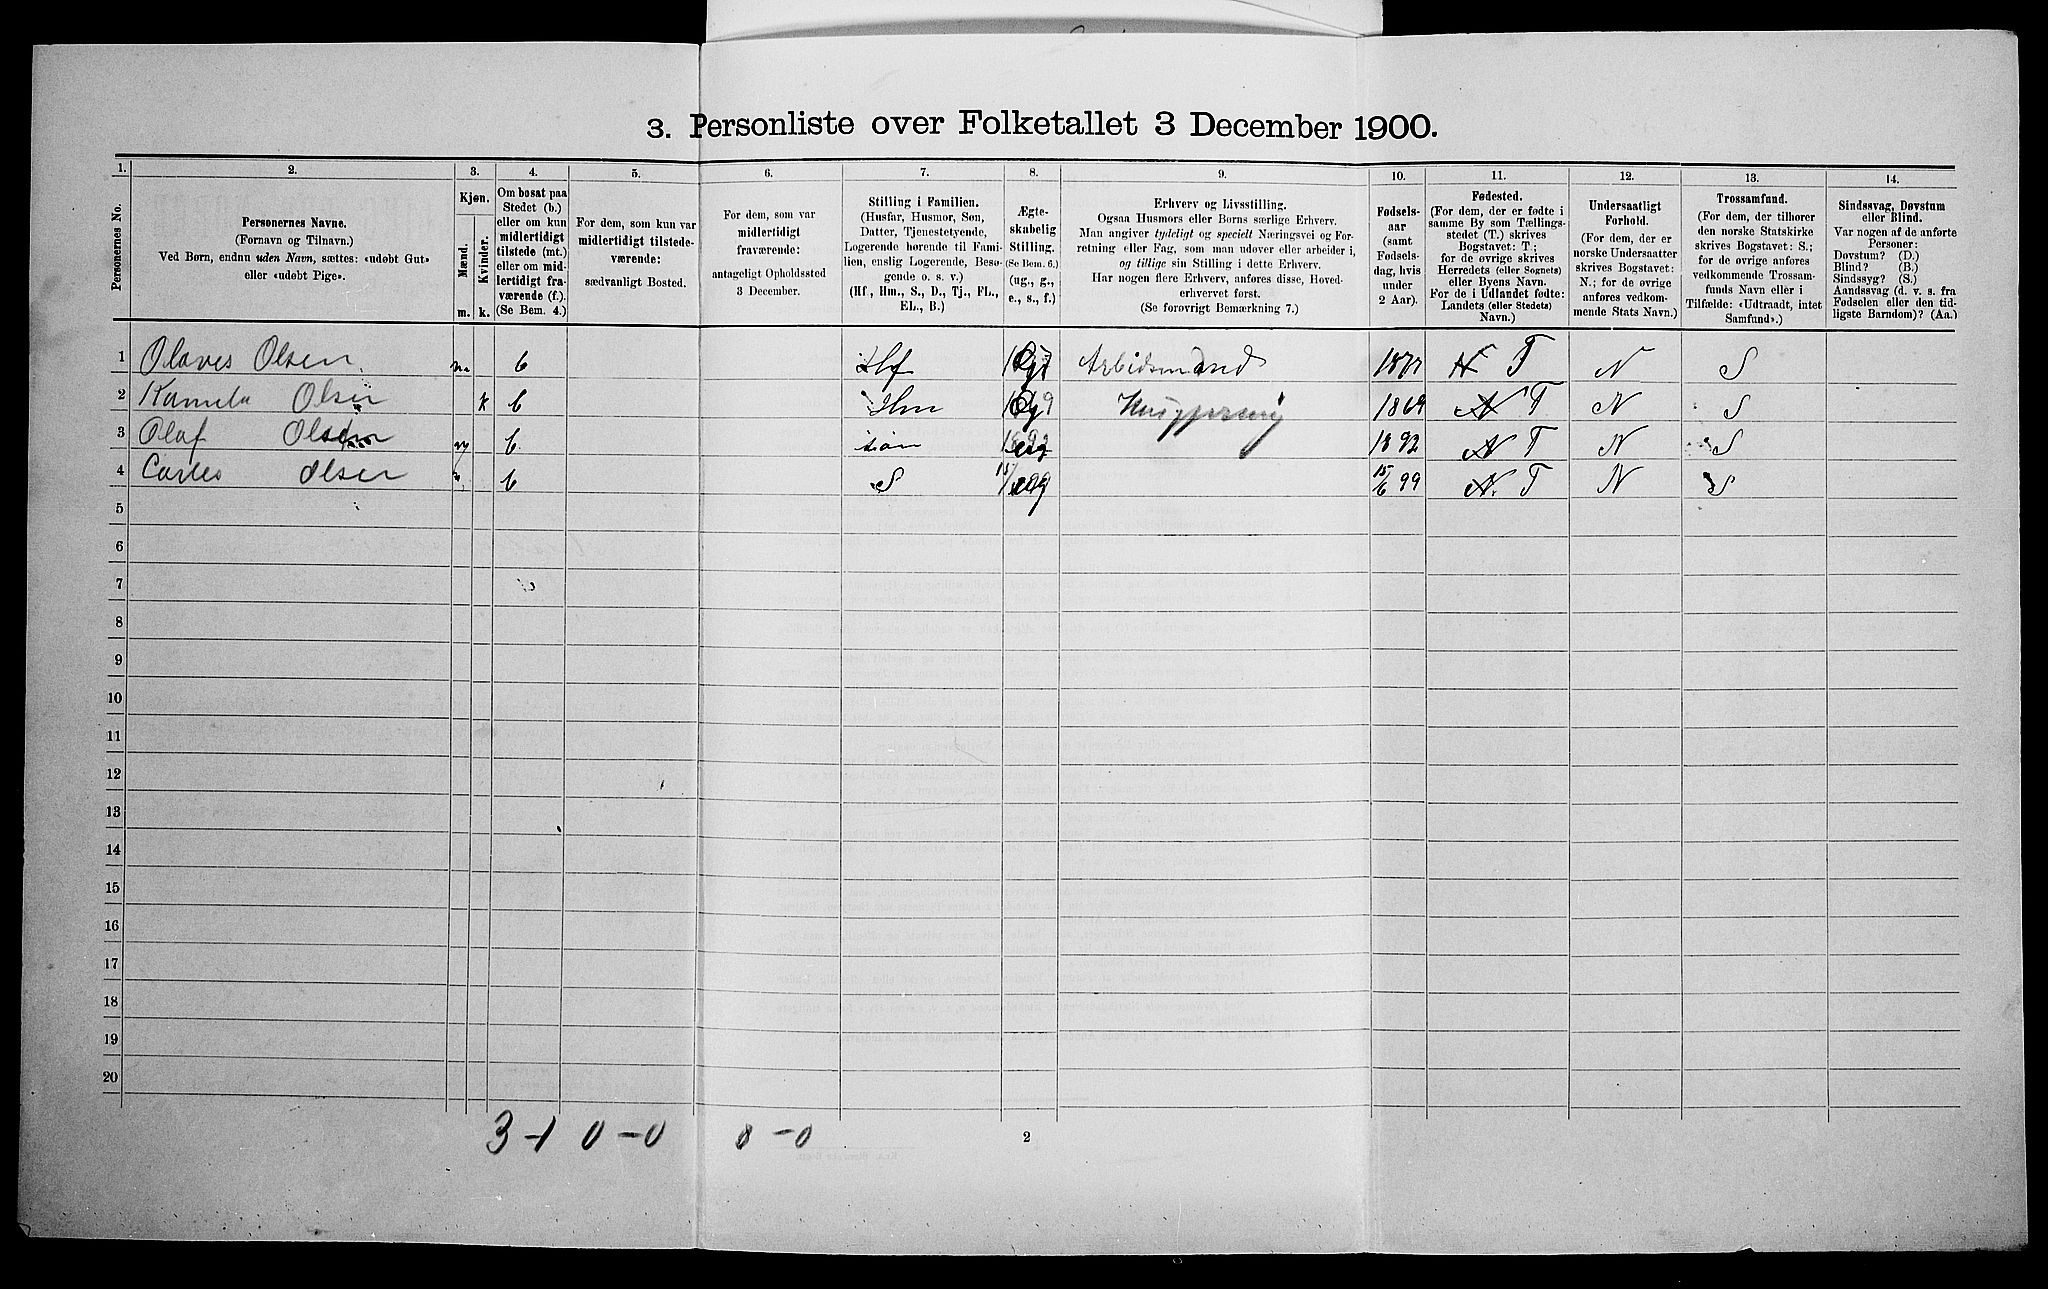 3. Personliste over Folketallet 3 December 1900.
1. 2. 3. 4. 5. 6. 7. 8. 9. 10. 11. 12. 13. 14.
Personernes No.
Personernes Navne.
(Fornavn og Tilnavn.)
Ved Børn, endnu uden Navn, sættes: «udøbt Gut»
eller «udøbt Pige».
Kjøn.
Mænd.
Kvinder.
m. k.
Om bosat paa
Stedet (b.)
eller om kun
midlertidigt
tilstede (mt.)
eller om mid-
lertidigt fra-
værende (f.)
(Se Bem. 4.)
For dem, som kun var
midlertidigt tilstede-
værende:
sædvanligt Bosted.
For dem, som var
midlertidigt
fraværende:
antageligt Opholdssted
3 December.
Stilling i Familien.
(Husfar, Husmor, Søn,
Datter, Tjenestetyende,
Logerende hørende til Fami-
lien, enslig Logerende, Besø-
gende o. s. v.)
(Hf., Hm., S., D., Tj., FL.,
EL., B.)
Ægte-
skabelig
Stilling.
(Se Bem. 6.)
(ug., g.,
e., s., f.)
Erhverv og Livsstilling.
Ogsaa Husmors eller Børns særlige Erhverv.
Man angiver tydeligt og specielt Næringsvei og For-
retning eller Fag, som man udøver eller arbeider i,
og tillige sin Stilling i dette Erhverv.
Har nogen flere Erhverv, anføres disse, Hoved-
erhvervet først.
(Se forøvrigt Bemærkning 7.)
Fødsels-
aar
(samt
Fødsels-
dag, hvis
under
2 Aar).
Fødested.
(For dem, der er fødte i
samme By som Tællings-
stedet (T.) skrives
Bogstavet: T.;
for de øvrige skrives
Herredets (eller Sognets)
eller Byens Navn.
For de i Udlandet fødte:
Landets (eller Stedets)
Navn.)
Undersaatligt
Forhold.
(For dem, der er
norske Undersaatter
skrives Bogstavet:
N.; for de øvrige
anføres vedkom-
mende Stats Navn.)
Trossamfund.
(For dem, der tilhører
den norske Statskirke
skrives Bogstavet: S.;
for de øvrige anføres
vedkommende Trossam-
funds Navn eller i
Tilfælde: «Udtraadt, intet
Samfund».)
Sindssvag, Døvstum
eller Blind.
Var nogen af de anførte
Personer:
Døvstum? (D.)
Blind? (B.)
Sindssyg? (S.)
Aandssvag (d. v. s. fra
Fødselen eller den tid-
ligste Barndom)? (Aa.)
1 Olaves Olsen m b Hf g Arbidsmand N T N S
2 Olsen k b Hm g 1869 N T N S
3 Olaf Olsen m b søn 1892 N T N S
4 Olsen b S 15/6 99 N. T N S
5
6
7
8
9
10
11
12
13
14
15
16
17
18
19
20
3-1 0-0 0-0
2